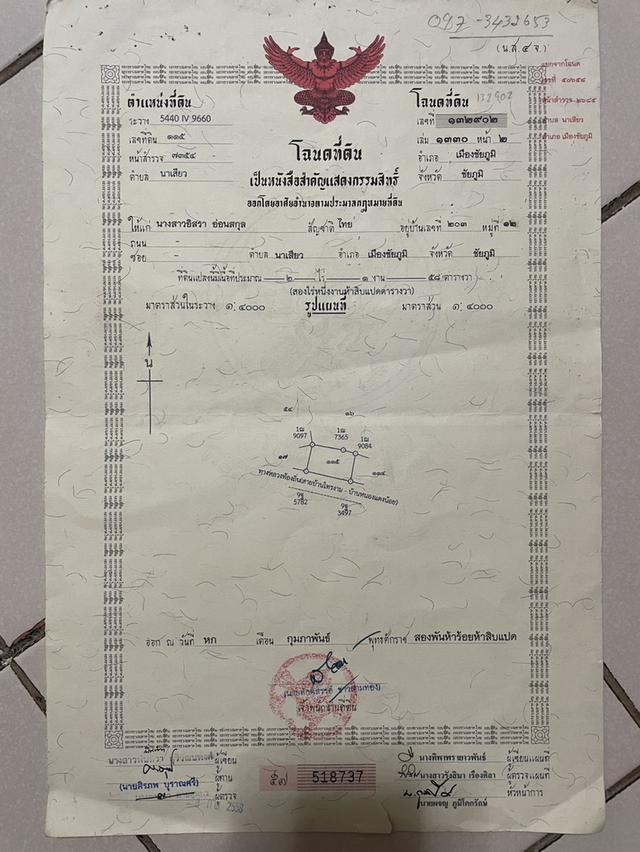 097-3432653
(น.ส.๔ จ.)
ตำแหน่งที่ดิน
ระวาง 5440 IV 9660
เลขที่ดิน ๑๑๕
หน้าสำรวจ ๗๓๕๔
ตำบล นาเสียว
โฉนดที่ดิน
132902
เลขที่ ๑๓๒๙๐๒
เล่ม ๑๓๓๐ หน้า ๒
อำเภอ เมืองชัยภูมิ
จังหวัด ชัยภูมิ
แยกจากโฉนด
เลขที่ ๕๐๖๕๘
หน้าสำรวจ ๒๖๘๕
ตำบล นาเสียว
อำเภอ เมืองชัยภูมิ
โฉนดที่ดิน
เป็นหนังสือสำคัญแสดงกรรมสิทธิ์
ออกโดยอาศัยอำนาจตามประมวลกฎหมายที่ดิน
ให้แก่ นางสาวอิสรา อ่อนสกุล สัญชาติ ไทย อยู่บ้านเลขที่ ๒๐๓ หมู่ที่ ๑๒
ถนน -
ซอย - ตำบล นาเสียว อำเภอ เมืองชัยภูมิ จังหวัด ชัยภูมิ
ที่ดินแปลงนี้มีเนื้อที่ประมาณ ๒ ไร่ ๑ งาน ๕๘ ตารางวา
(สองไร่หนึ่งงานห้าสิบแปดตารางวา)
มาตราส่วนในระวาง ๑:๔๐๐๐ รูปแผนที่ มาตราส่วน ๑:๔๐๐๐
น
๕๔ ๑๖
1ฒ 9097
1ฒ 7365
1ฒ 9084
๑๗ ๑๑๕ ๑๑๔
ทางหลวงท้องถิ่น(สายบ้านไทรงาม - บ้านหนองแดงน้อย)
9ฐ 5782
9ฐ 3497
ออก ณ วันที่ หก เดือน กุมภาพันธ์ พุทธศักราช สองพันห้าร้อยห้าสิบแปด
เจ้าพนักงานที่ดิน
ผู้เขียน
(นายศิรภพ บุราณศรี) ผู้ทาน
ผู้ตรวจ
2558
๕๗ 518737
นางทิพาพรายาวพันธ์ ผู้เขียนแผนที่
นางสาวรังสิมา เรืองศิลา ผู้ตรวจแผนที่
นายผจญ ภูมิโคกรักษ์ หัวหน้าการ